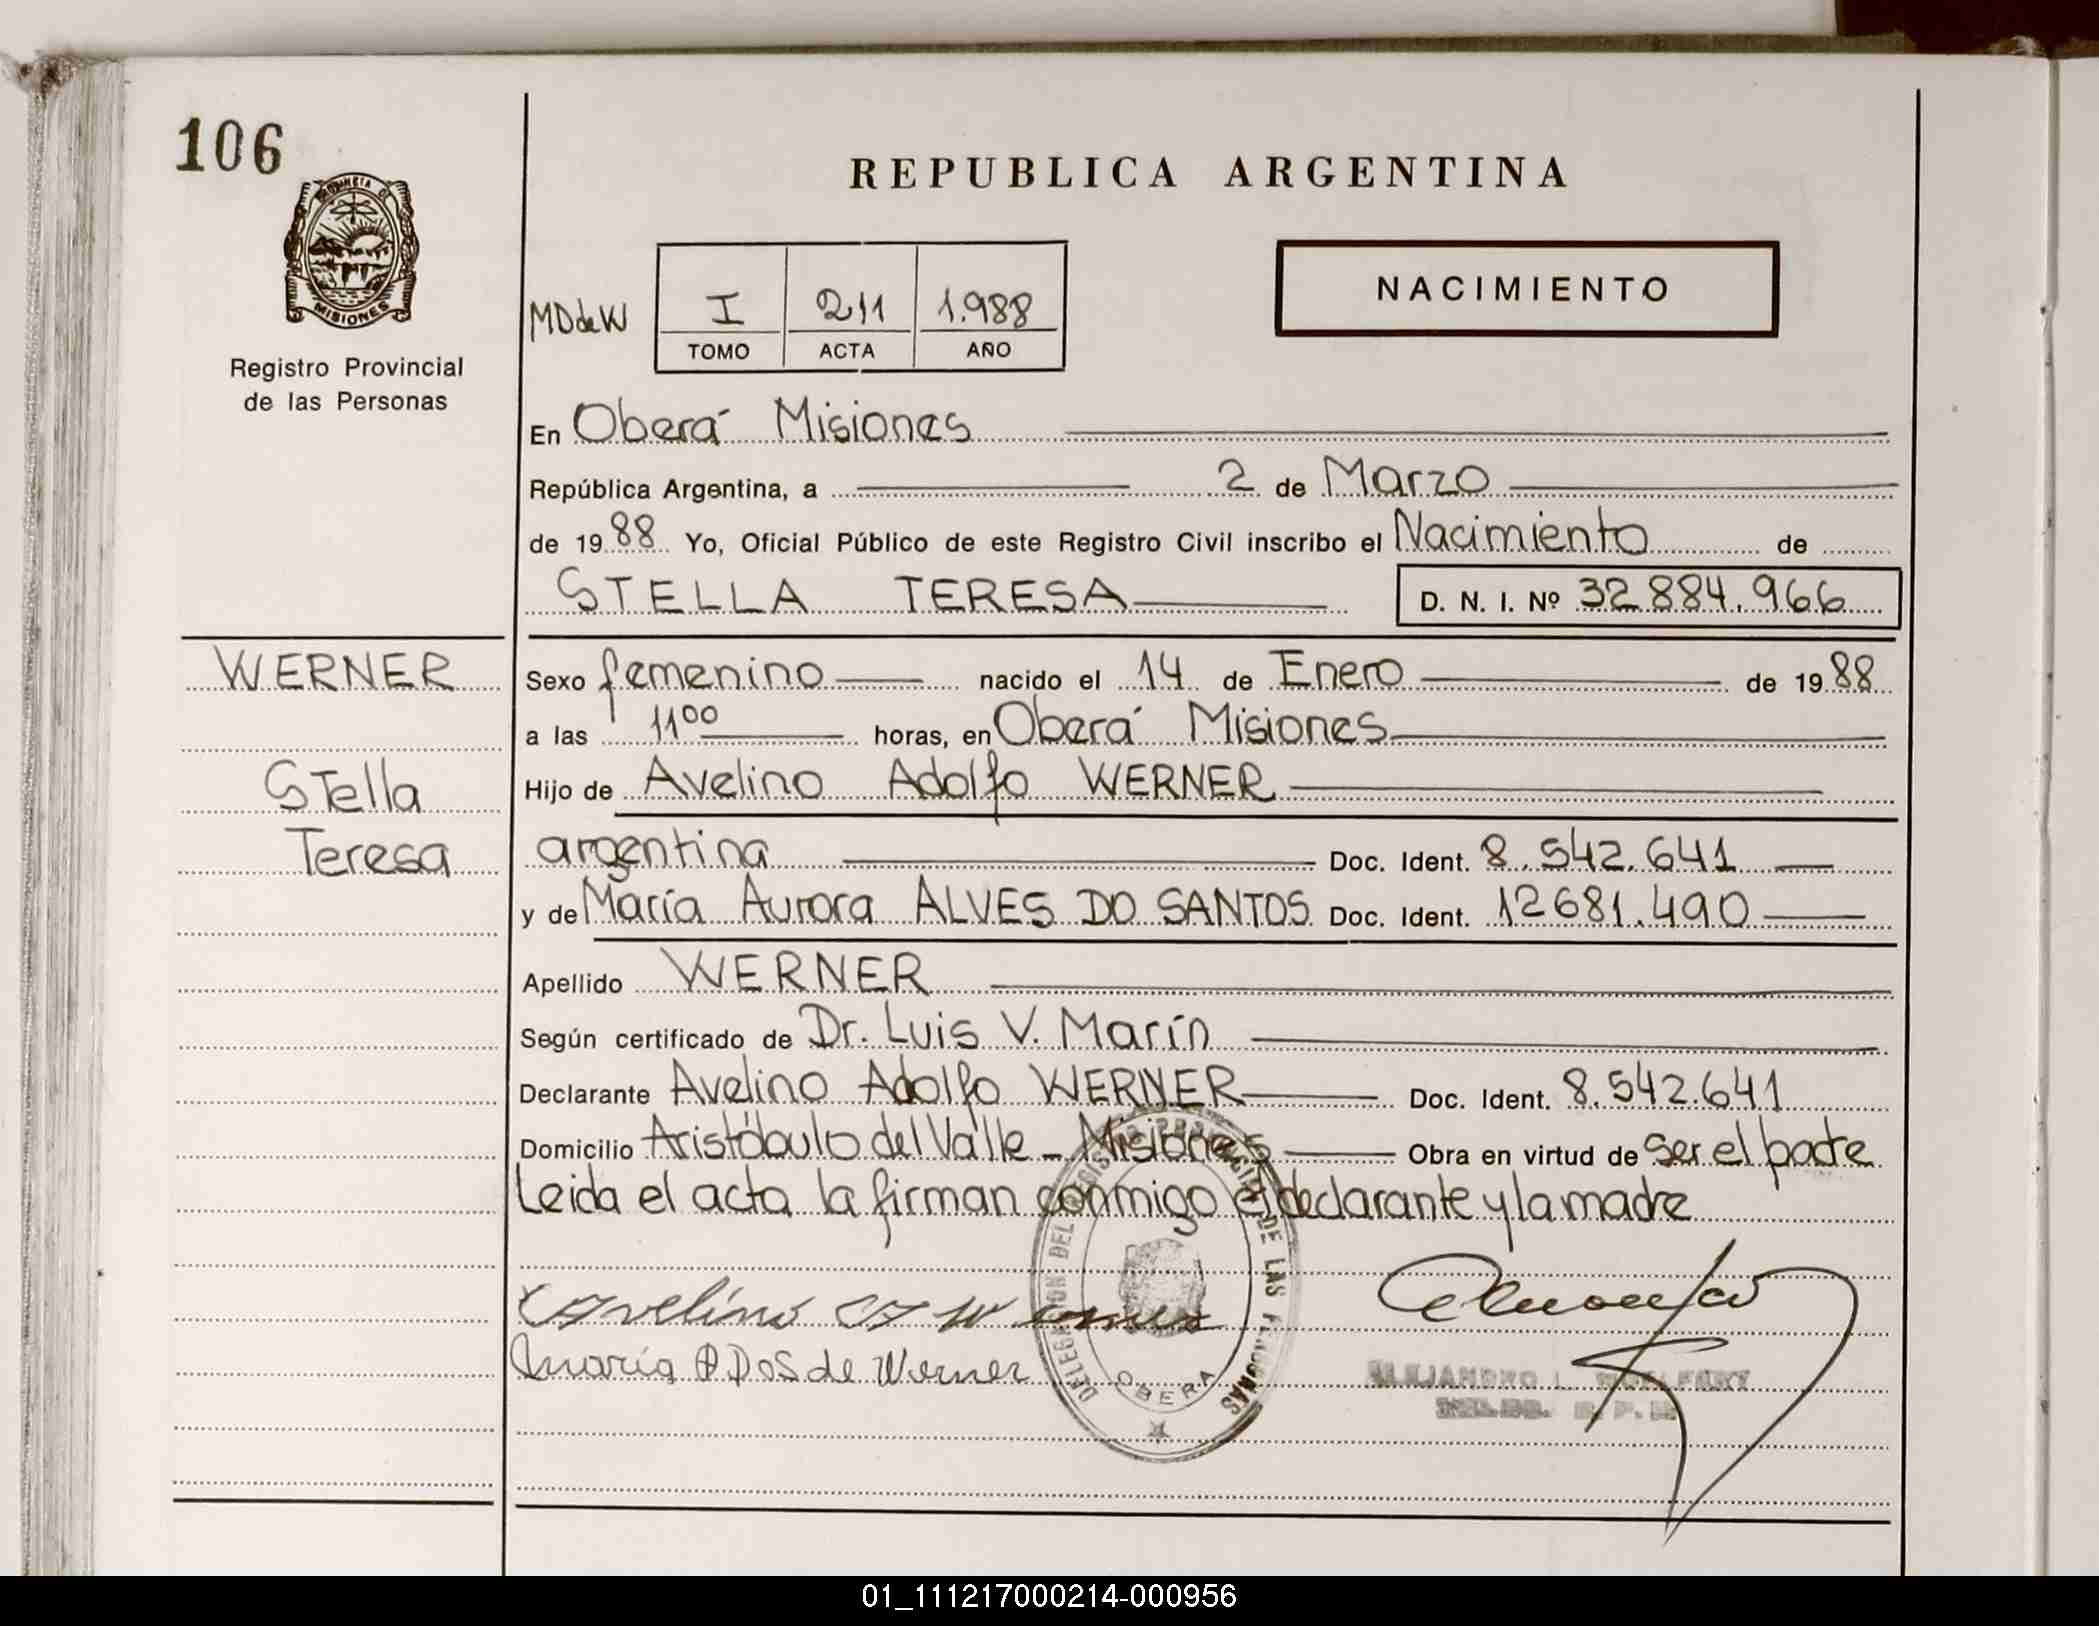 106
REPUBLICA ARGENTINA
PROVINCIA DE
MISIONES
Registro Provincial
de las Personas
MDdeW
I 211 1.988
TOMO ACTA AÑO
NACIMIENTO
En Oberá Misiones
República Argentina, a 2 de Marzo
de 1988 Yo, Oficial Público de este Registro Civil inscribo el Nacimiento de
STELLA TERESA D. N. I. Nº 32.884.966
WERNER
Stella
Teresa
Sexo femenino nacido el 14 de Enero de 1988
a las 11⁰⁰ horas, en Oberá Misiones
Hijo de Avelino Adolfo WERNER
argentina Doc. Ident. 8.542.641
y de María Aurora ALVES DO SANTOS Doc. Ident. 12681.490
Apellido WERNER
Según certificado de Dr. Luis V. Marín
Declarante Avelino Adolfo WERNER Doc. Ident. 8.542.641
Domicilio Aristóbulo del Valle - Misiones Obra en virtud de ser el padre
Leida el acta la firman conmigo el declarante y la madre
DELEGACION DEL REGISTRO PROVINCIAL DE LAS PERSONAS
OBERA
Avelino A W
María A DoS de Werner
ALEJANDRO L.
01_111217000214-000956